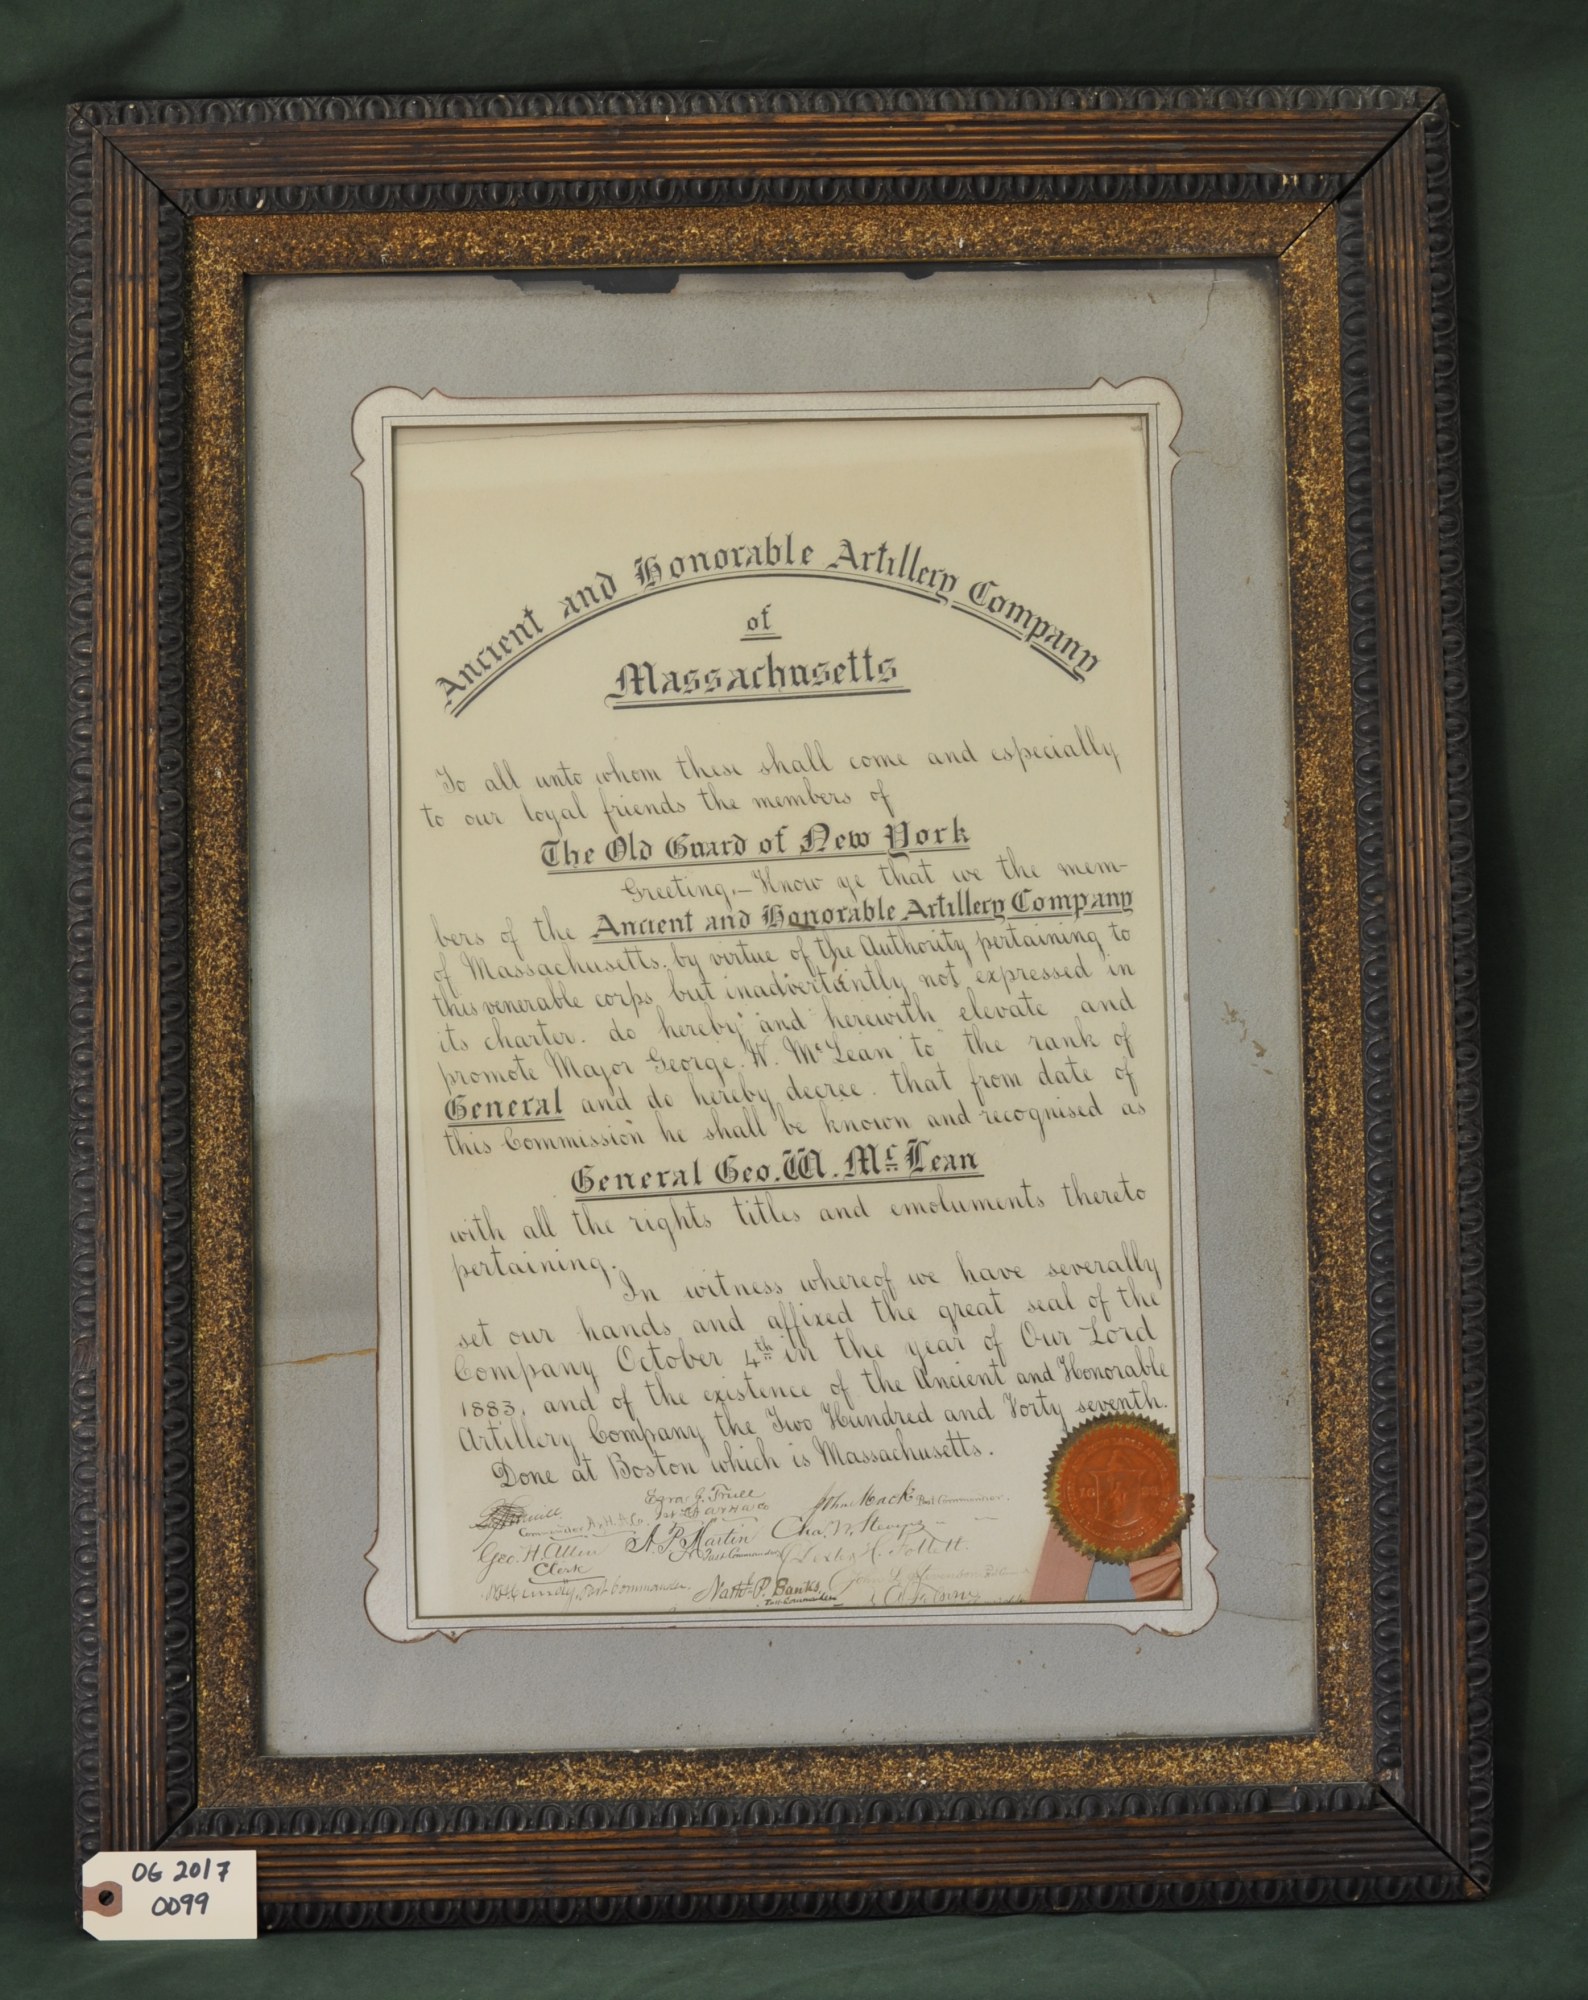 Ancient and Honorable Artillery Company
of
Massachusetts
To all unto whom these shall come and especially
to our loyal friends the members of
The Old Guard of New York
Greeting,— Know ye that we the mem-
bers of the Ancient and Honorable Artillery Company
of Massachusetts, by virtue of the Authority pertaining to
this venerable corps, but inadvertantly not expressed in
its charter, do hereby and herewith elevate and
promote Major George W. McLean to the rank of
General and do hereby decree that from date of
this Commission he shall be known and recognised as
General Geo. W. McLean
with all the rights titles and emoluments thereto
pertaining.
In witness whereof we have severally
set our hands and affixed the great seal of the
Company October 4th in the year of Our Lord
1883, and of the existence of the Ancient and Honorable
Artillery Company the Two Hundred and Forty seventh.
Done at Boston which is Massachusetts.
Ezra J. Trull
Commander A. & H. A. Co.
John Mack Past Commander.
Geo. H. Allen
Clerk
A. P. Martin
Past Commander
Past Commander
Nath'l P. Banks,
Past Commander
16
OG 2017
0099